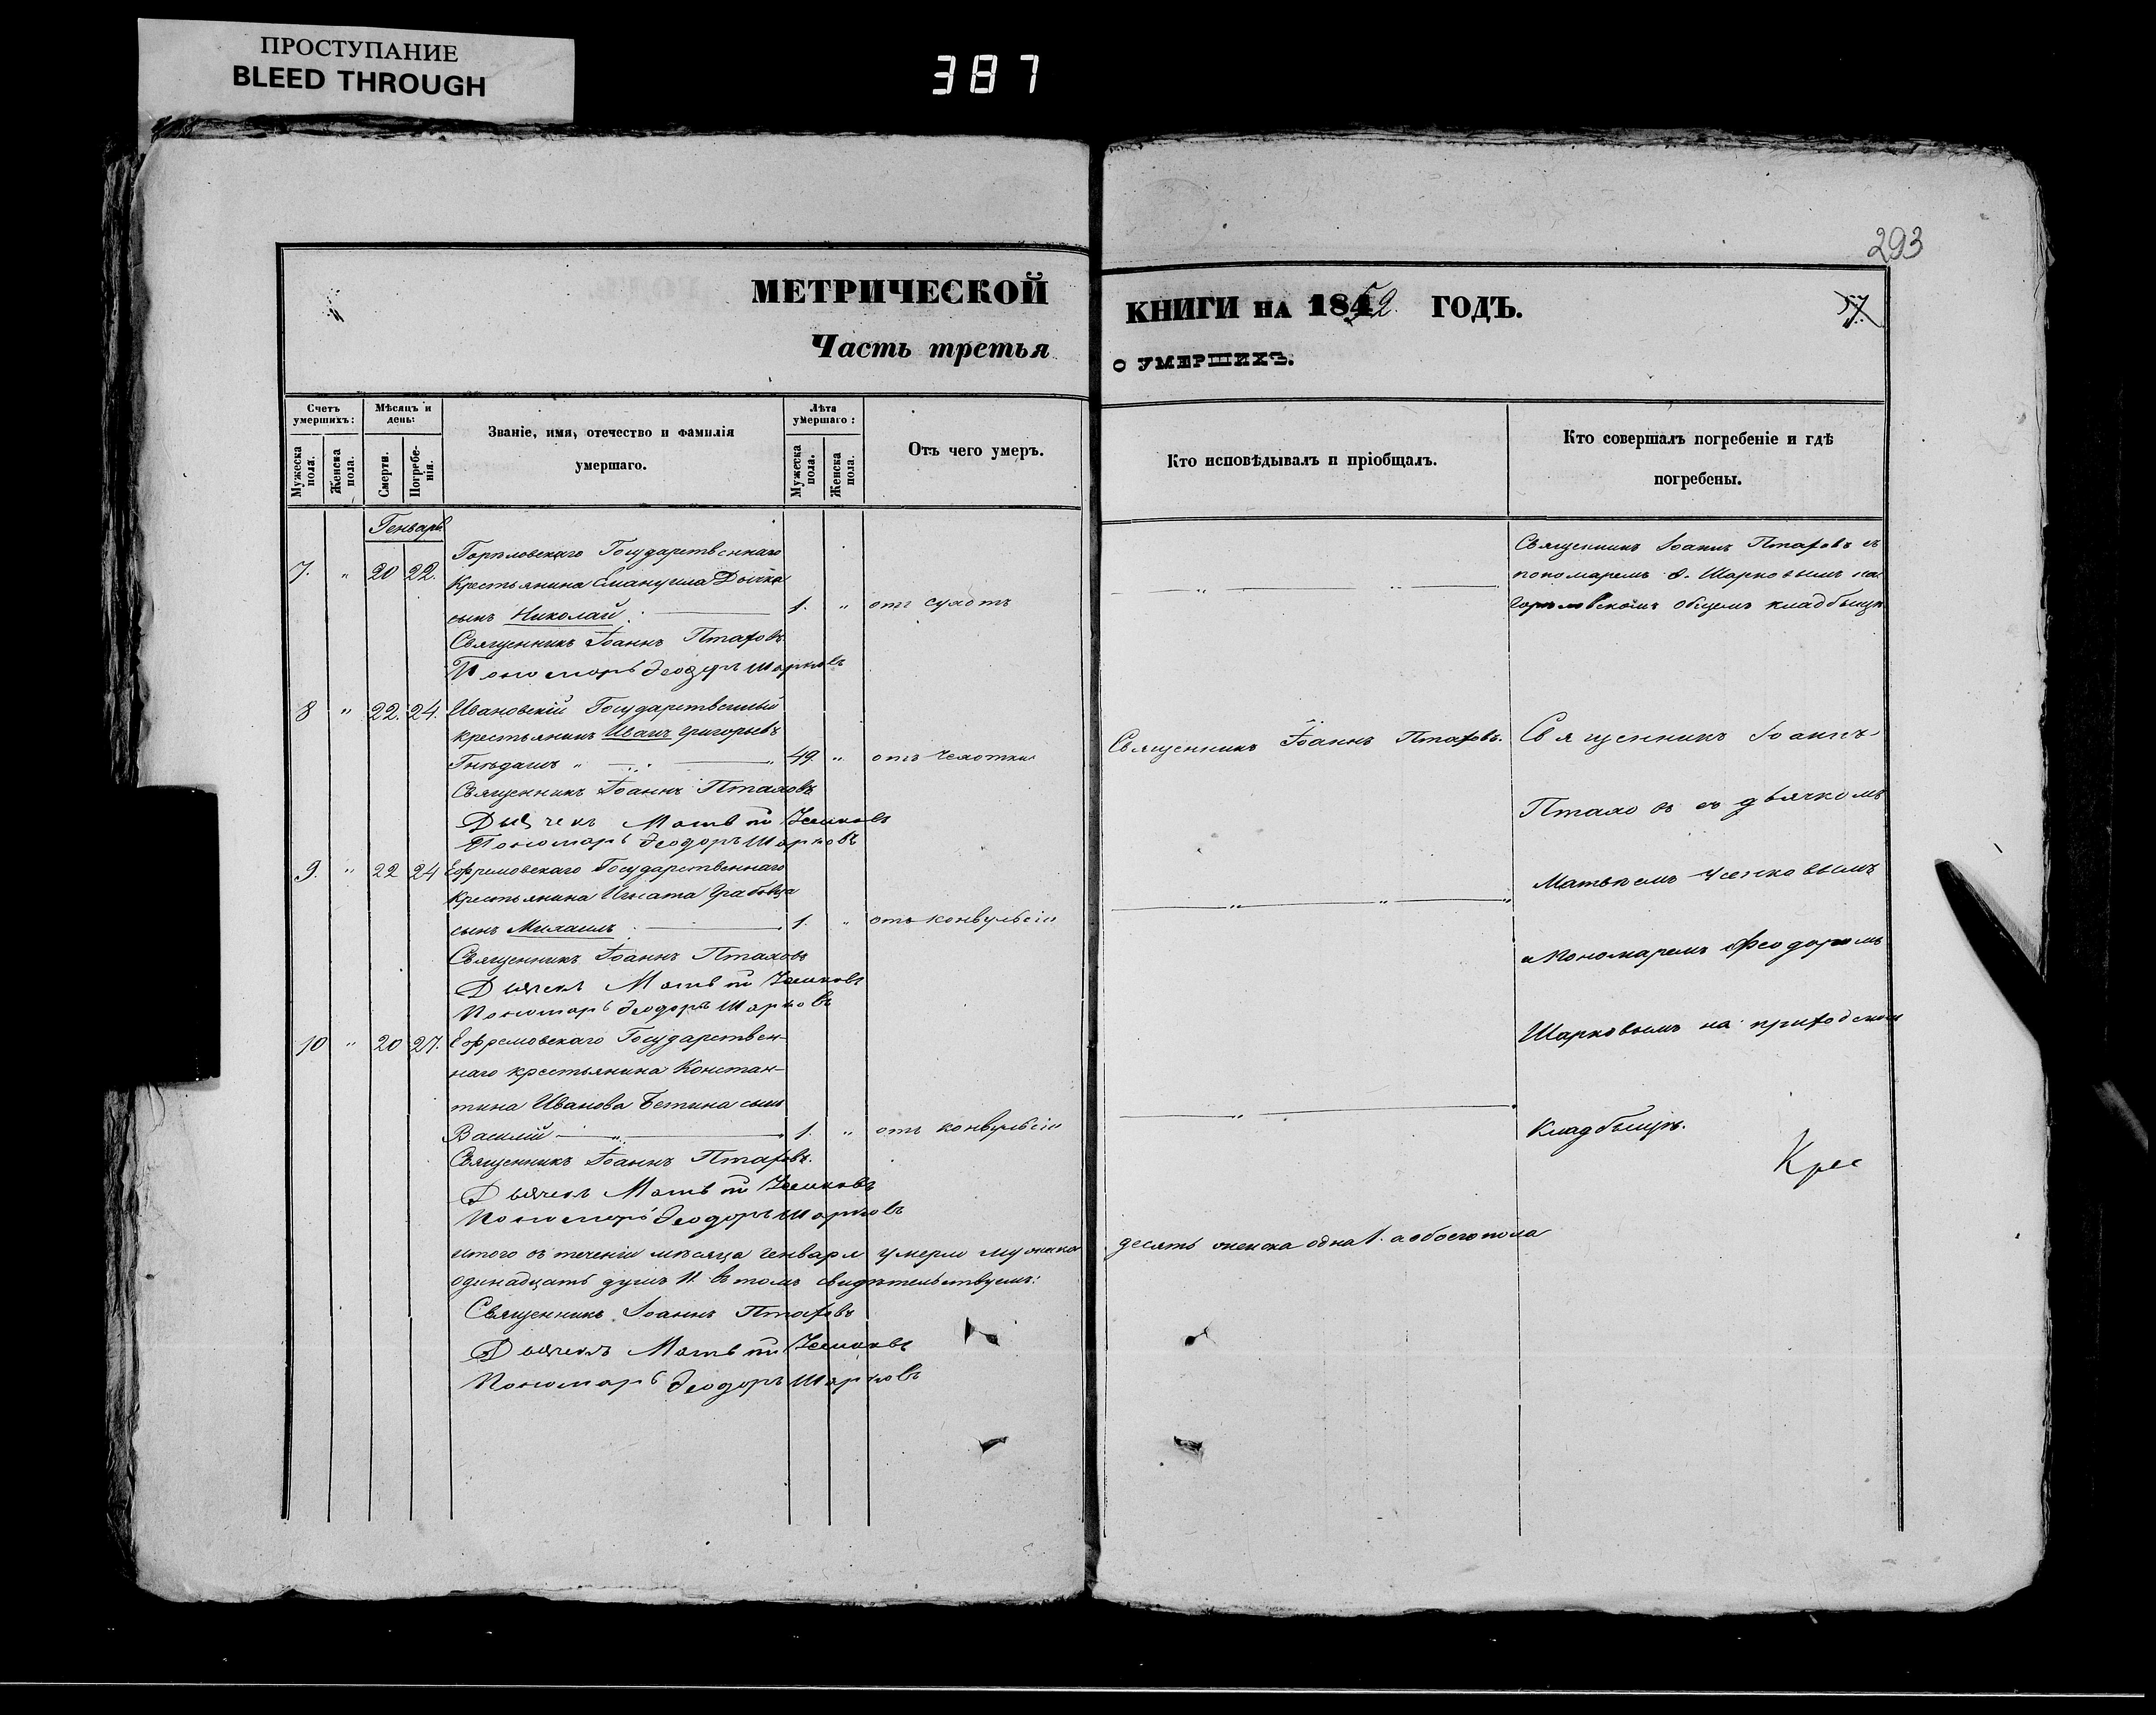 ПРОСТУПАНИЕ
BLEED THROUGH
387
293
МЕТРИЧЕСКОЙ
Часть третья
КНИГИ НА 1852 ГОДЪ.
57
О УМЕРШИХЪ.
Счетъ умершихъ:
Мужеска пола.
Женска пола.
Мѣсяцъ и день:
Смерти.
Погребенія.
Званіе, имя, отечество и фамилія
умершаго.
Лѣта умершаго:
Мужеска пола.
Женска пола.
Отъ чего умеръ.
Кто исповѣдывалъ и пріобщалъ.
Кто совершалъ погребеніе и гдѣ
погребены.
Генварь
7. " 20 22. Государственнаго
Крестьянина Емануила
сынъ Николай 1. " отъ сухотъ
Священникъ Іоаннъ Птаховъ
Пономарь Ѳеодоръ Шарковъ
Священникъ Іоаннъ Птаховъ съ
пономаремъ Ѳ. Шарковымъ на
общемъ кладбищѣ
8 " 22. 24. Ивановскій Государственный
крестьянинъ Иванъ Григорьевъ
49. " отъ чахотки
Священникъ Іоаннъ Птаховъ
Дьячекъ
Пономарь Ѳеодоръ Шарковъ
Священникъ Іоаннъ Птаховъ.
Священникъ Іоаннъ
Птаховъ съ дьячкомъ
9. " 22 24 Ефремовскаго Государственнаго
крестьянина Игната
сынъ Михаилъ 1. " отъ конвульсіи
Священникъ Іоаннъ Птаховъ
Дьячекъ
Пономарь Ѳеодоръ Шарковъ
и Пономаремъ Феодоромъ
10 " 20 27. Ефремовскаго Государствен-
наго крестьянина Констан-
тина Иванова сынъ
Василій 1. " отъ конвульсіи
Священникъ Іоаннъ Птаховъ.
Дьячекъ
Пономарь Ѳеодоръ Шарковъ
Шарковымъ на приходскомъ
кладбищѣ.
Крес
итого въ теченіи мѣсяца генваря умерло мужеска десять женска одна 1. а обоего пола
одинадцать душъ 11. въ томъ свидѣтельствуемъ:
Священникъ Іоаннъ Птаховъ
Дьячекъ
Пономарь Ѳеодоръ Шарковъ